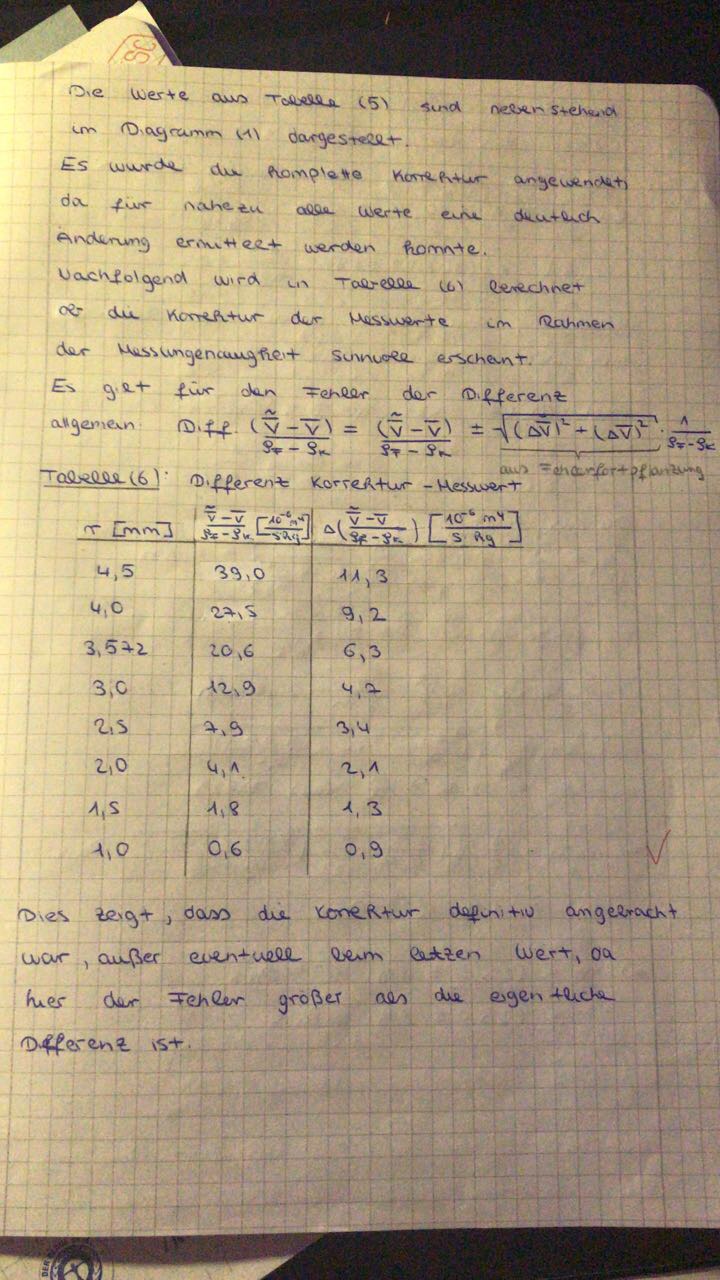 SC
Die Werte aus Tabelle (5) sind nebenstehend
im Diagramm (1) dargestellt.
Es wurde die komplette Korrektur angewendet,
da für nahezu alle Werte eine deutlich
Änderung ermittelt werden konnte.
Nachfolgend wird in Tabelle (6) berechnet
ob die Korrektur der Messwerte im Rahmen
der Messungenauigkeit sinnvoll erscheint.
Es gilt für den Fehler der Differenz
allgemein: Diff. (Ṽ̄ − V̄)/(ρF − ρK) = (Ṽ̄ − V̄)/(ρF − ρK) ± √((ΔṼ̄)² + (ΔV̄)²) · 1/(ρF − ρK)
aus Fehlerfortpflanzung
Tabelle (6): Differenz Korrektur - Messwert
r [mm] (Ṽ̄ − V̄)/(ρF − ρK) [10⁻⁶ m⁴/s kg] Δ((Ṽ̄ − V̄)/(ρF − ρK)) [10⁻⁶ m⁴/s kg]
4,5 39,0 11,3
4,0 27,5 9,2
3,572 20,6 6,3
3,0 12,9 4,7
2,5 7,9 3,4
2,0 4,1 2,1
1,5 1,8 1,3
1,0 0,6 0,9
Dies zeigt, dass die Korrektur definitiv angebracht
war, außer eventuell beim letzen Wert, da
hier der Fehler größer als die eigentliche
Differenz ist.